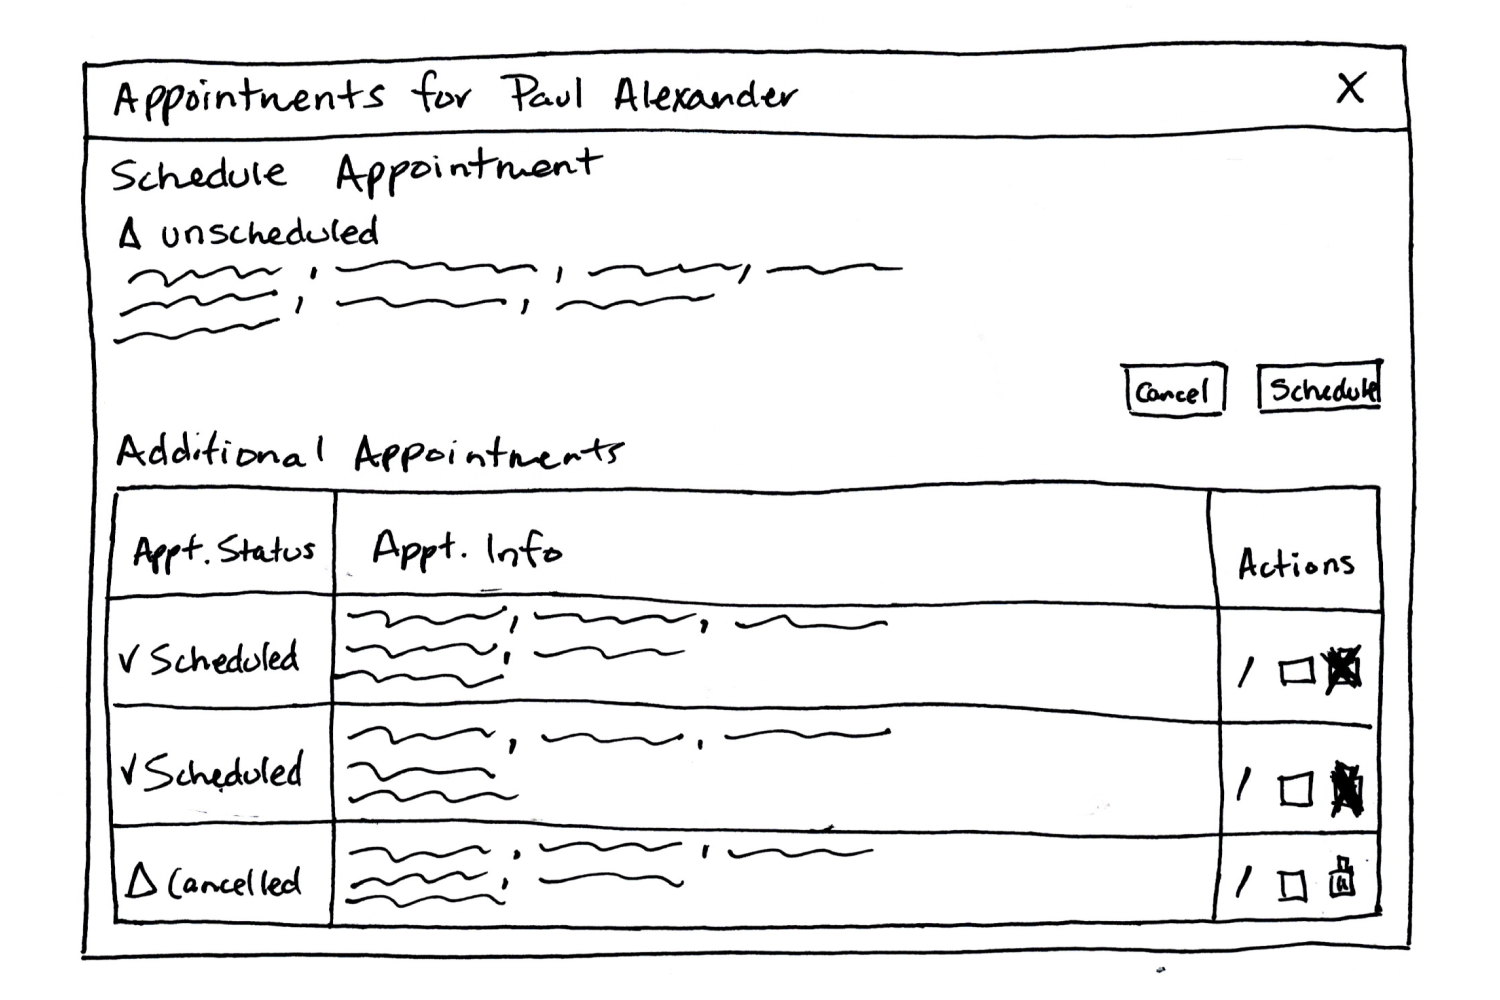 Appointments for Paul Alexander X
Schedule Appointment
Δ unscheduled
Cancel Schedule
Additional Appointments
Appt. Status Appt. Info Actions
√ Scheduled
√ Scheduled
Δ Cancelled